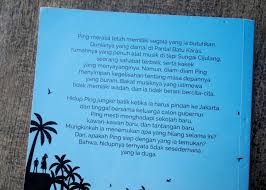 Ping merasa telah memiliki segala yang ia butuhkan.
Dunianya yang damai di Pantai Batu Karas,
rumahnya yang penuh alat musik di tepi Sungai Cijulang,
seorang sahabat terbaik, serta kakek
yang menyayanginya. Namun, diam-diam Ping
menyimpan kegelisahan tentang masa depannya
yang buram. Bakat musiknya yang istimewa
tidak memiliki wadah, dan ia tidak berani bercita-cita.
Hidup Ping jungkir balik ketika ia harus pindah ke Jakarta
dan tinggal bersama keluarga calon gubernur.
Ping mesti menghadapi sekolah baru,
kawan-kawan baru, dan tantangan baru.
Mungkinkah ia menemukan apa yang hilang selama ini?
Dan, apakah Ping siap dengan yang ia temukan?
Bahwa, hidupnya ternyata tidak sesederhana
yang ia duga.